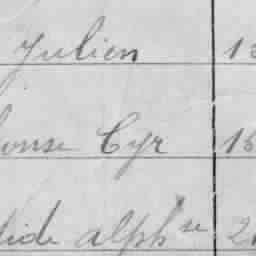 Julien 13
onse Cyr 16
dide alphse 2